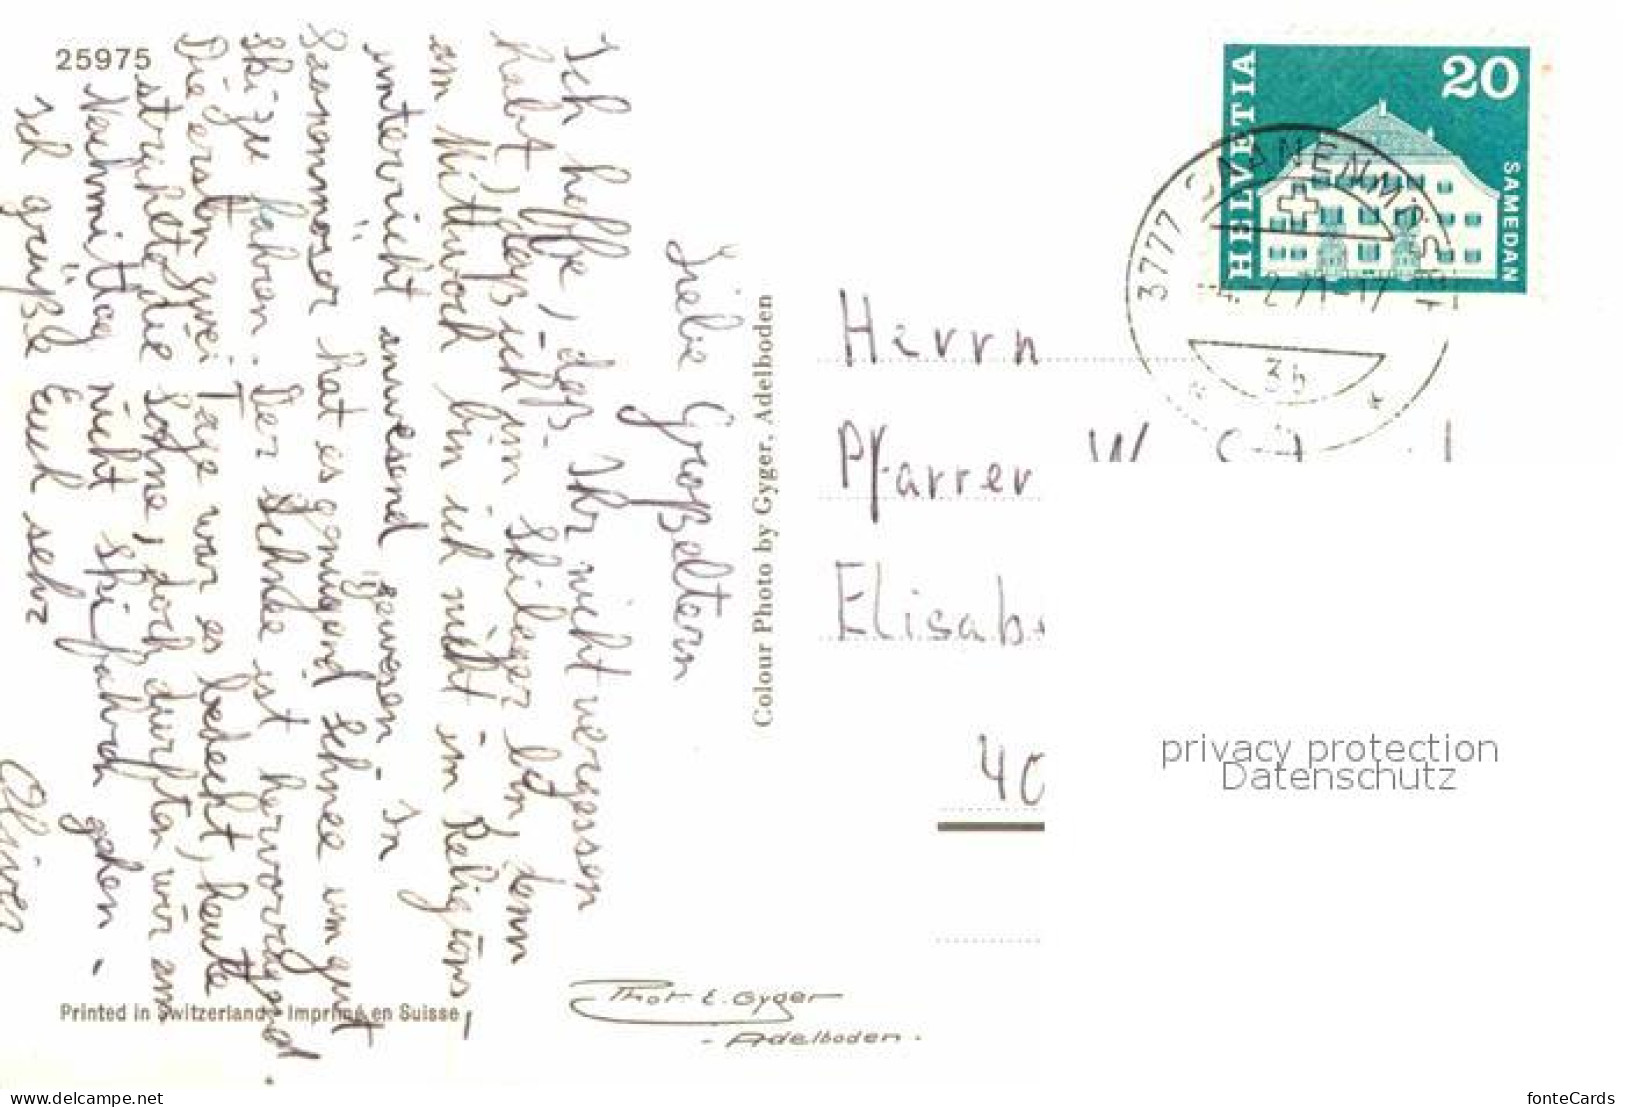 25975
Liebe Großeltern
Ich hoffe, daß Ihr nicht vergessen
habt, daß ich im Skilager bin, denn
am Mittwoch bin ich nicht im Religions-
unterricht anwesend gewesen. In
Saanenmöser hat es genügend Schnee um gut
Ski zu fahren. Der Schnee ist hervorragend.
Die ersten zwei Tage war es bedeckt, heute
strahlte die Sonne, doch durften wir am
Nachmittag nicht skifahren gehen.
Ich grüße Euch sehr
Oliver
Colour Photo by Gyger, Adelboden
Printed in Switzerland - Imprimé en Suisse
Phot E. Gyger
- Adelboden.
HELVETIA
20
SAMEDAN
3777 SAANENMÖSER
3b
Herrn
Pfarrer W.
Elisab
40
privacy protection
Datenschutz
www.delcampe.net
fonteCards